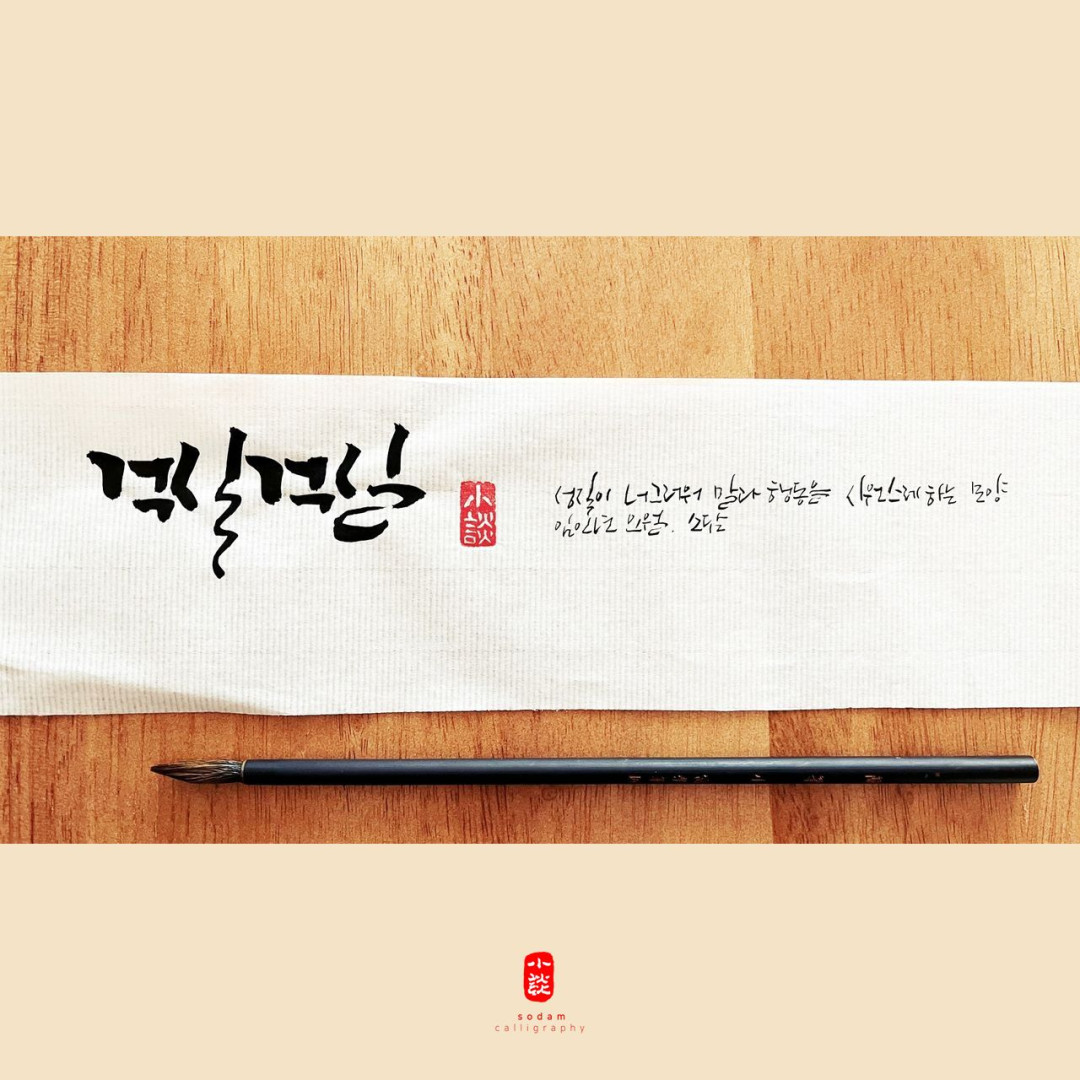 걱실걱실
小談
성질이 너그러워 말과 행동을 시원스레 하는 모양
임인년 오월. 소담
小談
sodam
calligraphy